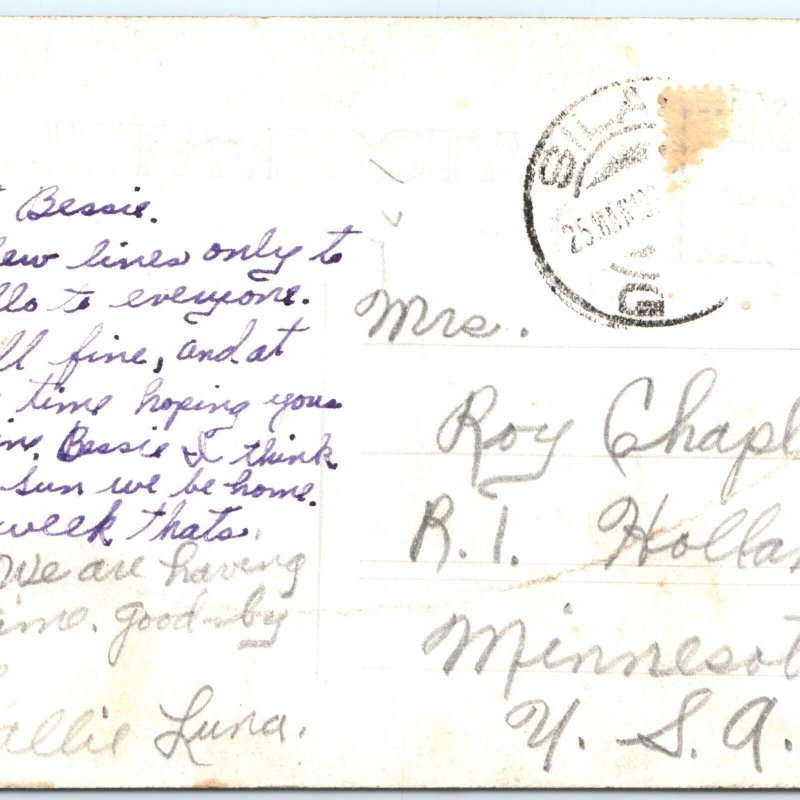 Bessie.
few lines only to
to everyone.
fine, and at
time hoping your
Bessie I think
sun we be home.
week thats.
We are having
time. good-by
Luna.
SILA
25 MAR
Mrs.
Roy Chapl
R.1. Hollan
Minnesot
U.S.A.